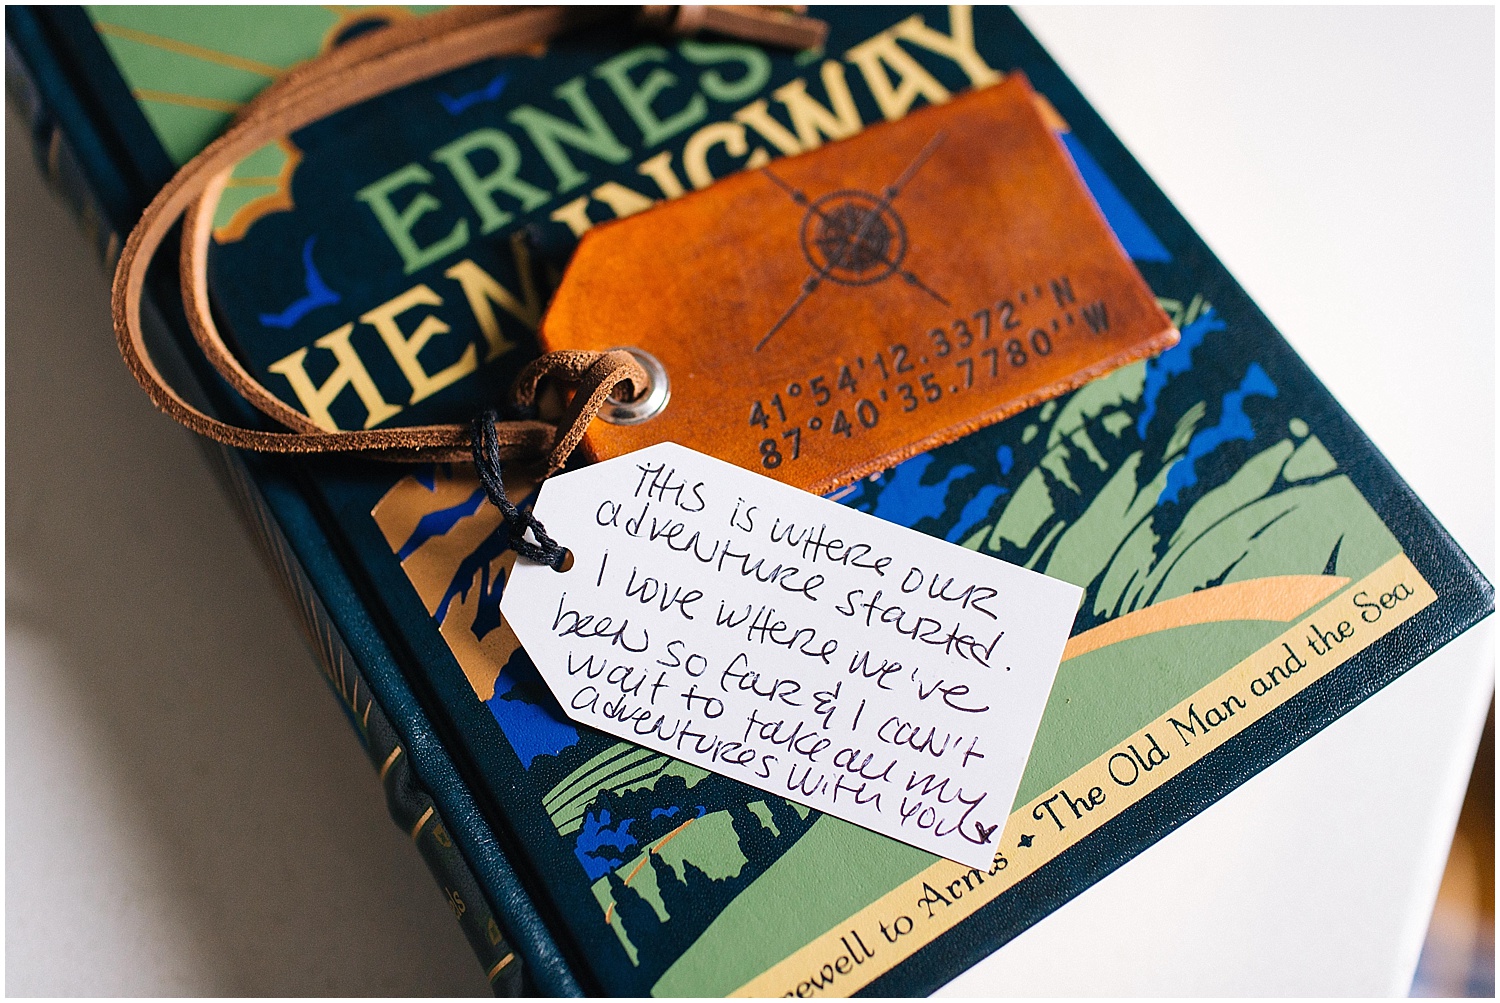 ERNEST
HEMINGWAY
41°54'12.3372''N
87°40'35.7780''W
THIS is WHERE OUR
adVENTURE STARTED.
I LOVE WHERE WE'VE
been so far & I CAN'T
wait to take all my
adventures with you
Farewell to Arms ◆ The Old Man and the Sea